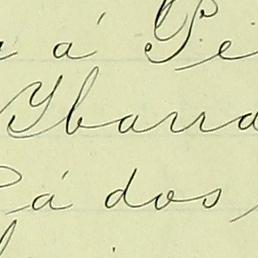 á Pe
Ybarra
á dos